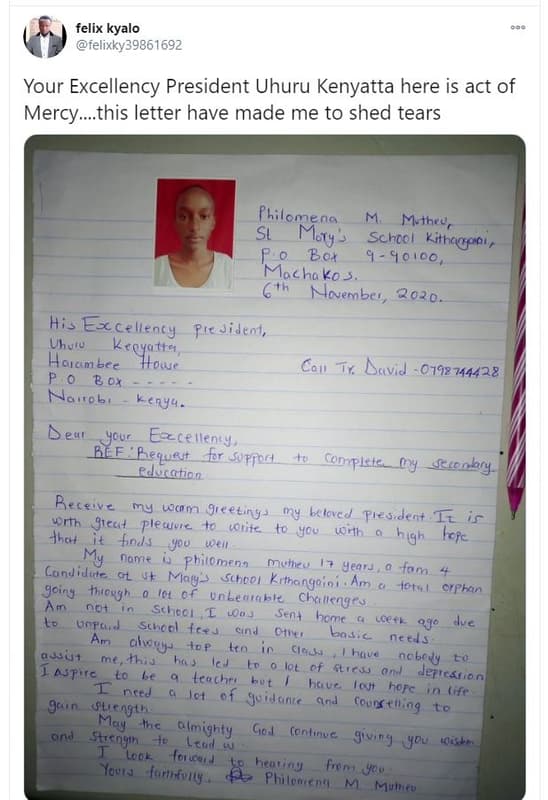 felix kyalo
@felixky39861692
Your Excellency President Uhuru Kenyatta here is act of
Mercy....this letter have made me to shed tears
Philomena M. Mutheu,
St Mary's School Kithangaini,
P.o Box 9-90100,
Machakos.
6th November, 2020.
His Excellency president,
Uhuru Kenyatta,
Harambee House
P O BOX - - - - -
Nairobi - Kenya.
Call Tr. David - 0798744428
Dear your Excellency,
REF: Request for support to complete my secondary
education
Receive my warm greetings my beloved president. It is
worth great pleasure to write to you with a high hope
that it finds you well.
My name is philomena mutheu 17 years, a form 4
Candidate at st Mary's School Kithangaini. Am a total orphan
going through a lot of unbearable Challenges.
Am not in School, I was Sent home a week ago due
to unpaid School fees and other basic needs.
Am always top ten in class, I have nobody to
assist me, this has led to a lot of stress and depression
I Aspire to be a teacher but I have lost hope in life.
I need a lot of guidance and counselling to
gain strength.
May the almighty God continue giving you wisdom
and Strength to Lead us
I Look forward to hearing from you
Yours faithfully. Philomena M. Mutheu